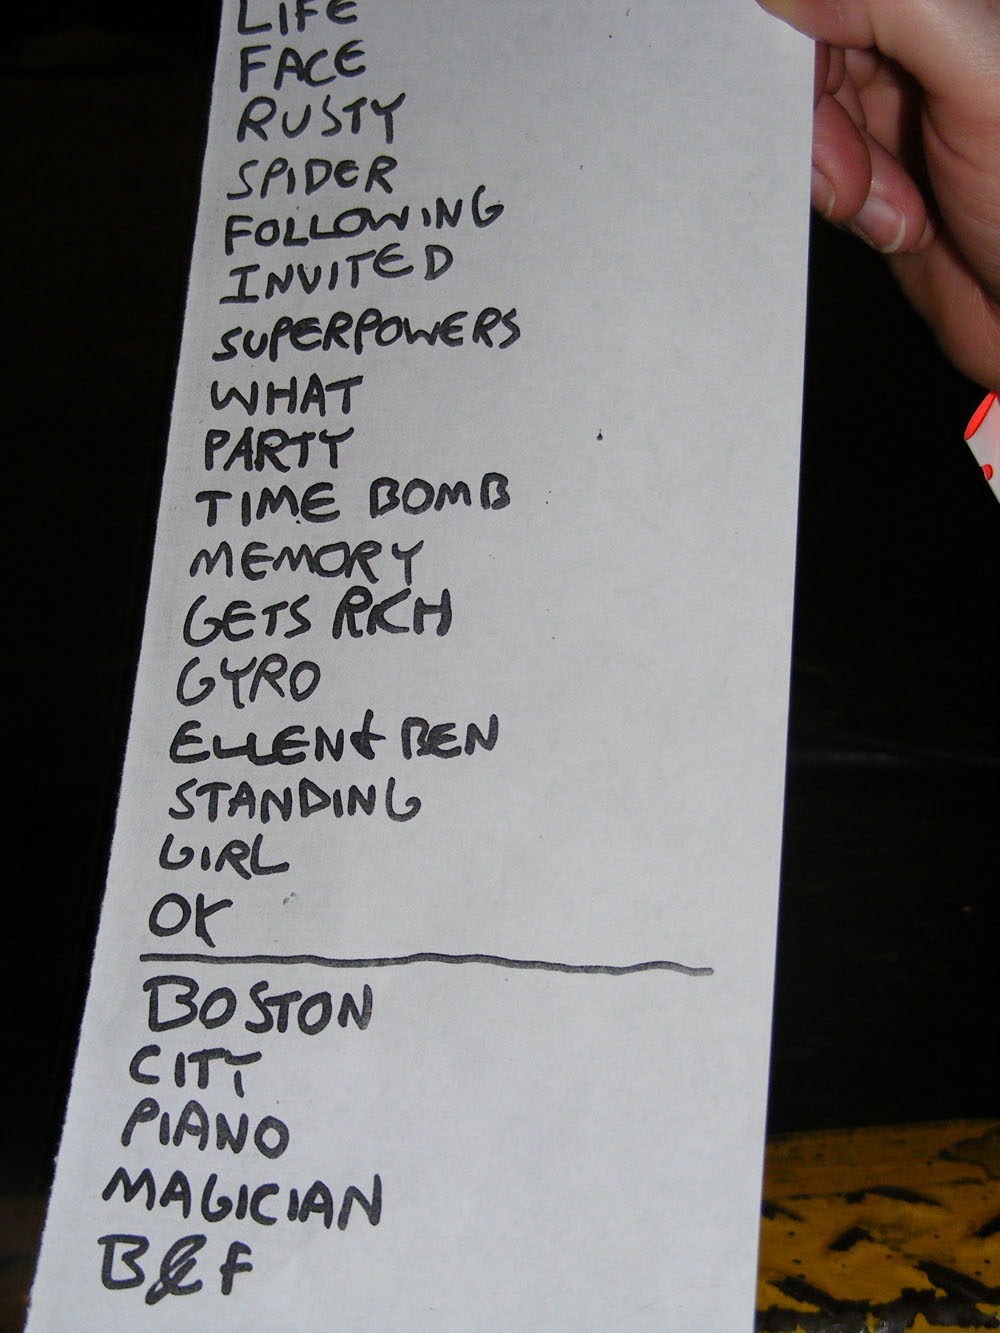 LIFE
FACE
RUSTY
SPIDER
FOLLOWING
INVITED
SUPERPOWERS
WHAT
PARTY
TIME BOMB
MEMORY
GETS RICH
GYRO
ELLEN & BEN
STANDING
GIRL
OK
BOSTON
CITY
PIANO
MAGICIAN
B & F